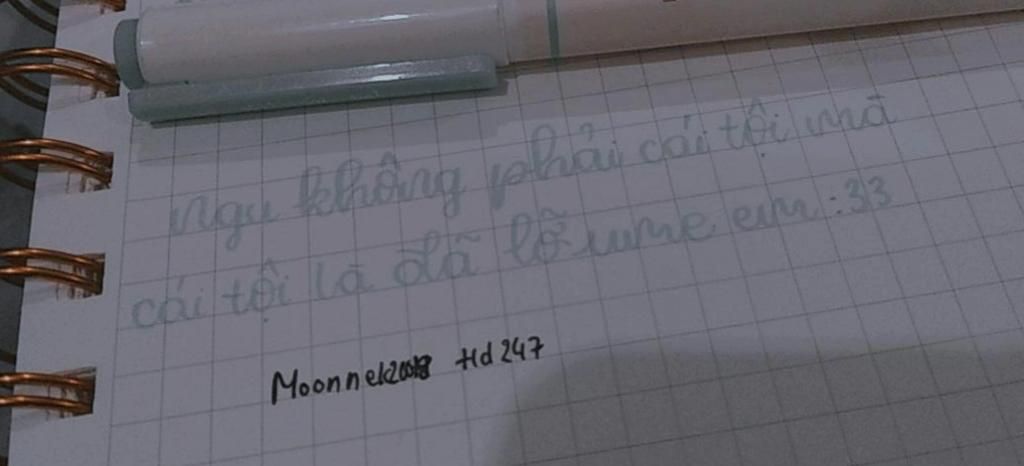 ngu không phải cái tội mà
cái tội là đã lỡ iume em :33
Moonnek2008 Hd247